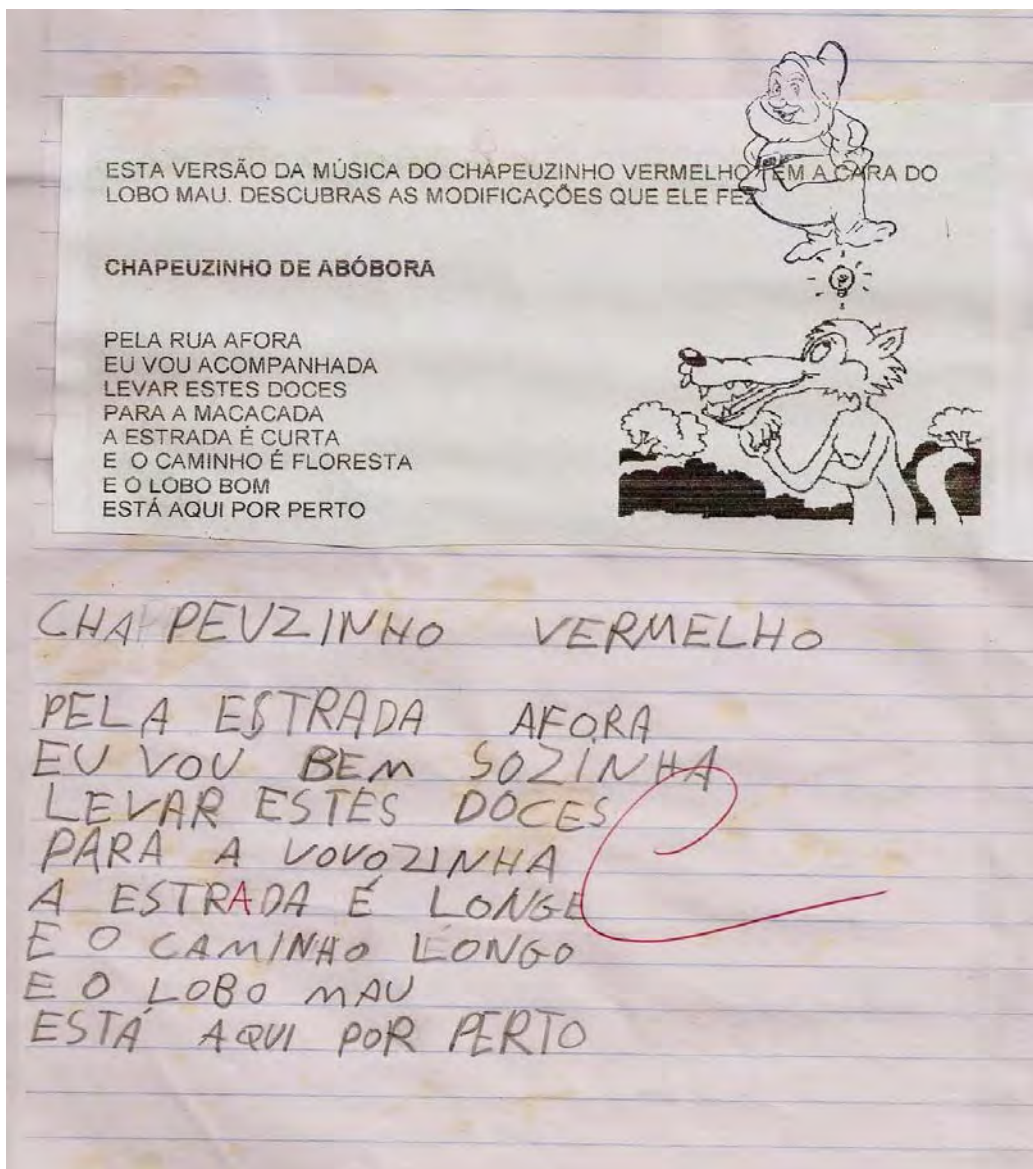 ESTA VERSÃO DA MÚSICA DO CHAPEUZINHO VERMELHO TEM A CARA DO
LOBO MAU. DESCUBRAS AS MODIFICAÇÕES QUE ELE FEZ
CHAPEUZINHO DE ABÓBORA
PELA RUA AFORA
EU VOU ACOMPANHADA
LEVAR ESTES DOCES
PARA A MACACADA
A ESTRADA É CURTA
E O CAMINHO É FLORESTA
E O LOBO BOM
ESTÁ AQUI POR PERTO
CHAPEUZINHO VERMELHO
PELA ESTRADA AFORA
EU VOU BEM SOZINHA
LEVAR ESTES DOCES
PARA A VOVOZINHA
A ESTRADA É LONGE
E O CAMINHO LONGO
E O LOBO MAU
ESTÁ AQUI POR PERTO